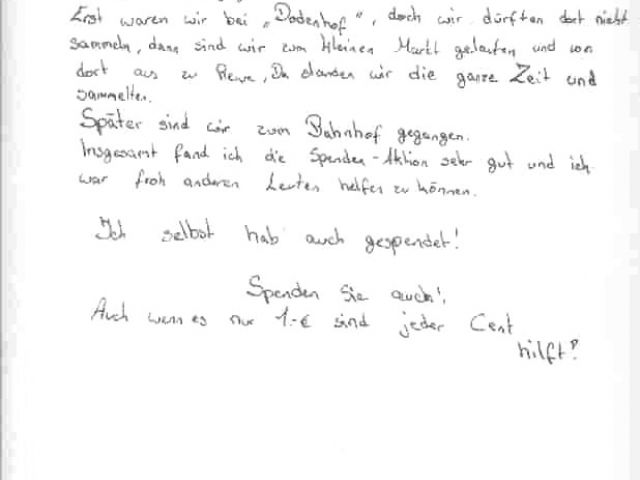 Erst waren wir bei „Dodenhof", doch wir dürften dort nicht
sammeln, dann sind wir zum kleinen Markt gelaufen und von
dort aus zu Rewe, Da standen wir die ganze Zeit und
sammelten.
Später sind wir zum Bahnhof gegangen.
Insgesamt fand ich die Spenden-Aktion sehr gut und ich
war froh anderen Leuten helfen zu können.
Ich selbst hab auch gespendet!
Spenden Sie auch!
Auch wenn es nur 1.-€ sind jeder Cent
hilft!